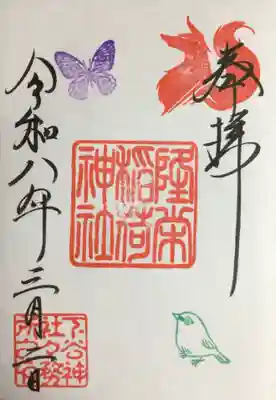 奉拝
隆栄
稲荷
神社
令和八年三月二日
下谷神
社々務